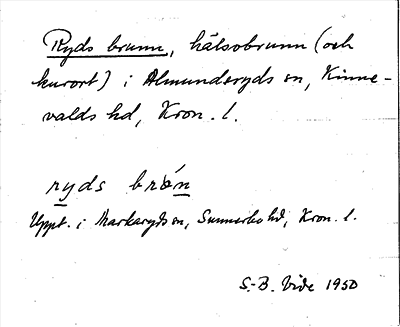 Ryds brunn, hälsobrunn (och
kurort) i Almundsryds sn, Kinne-
valds hd, Kron. l.
ryds brón
Uppt. i Markaryds sn, Sunnerbo hd, Kron. l.
S.-B. Vide 1950